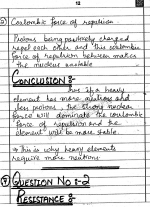 12
② Coulombic force of repulsion -
Protons being positively charged
repel each other and this coulombic
force of repulsion between makes
the nucleus unstable
CONCLUSION :-
Thus if a heavy
element has more neutrons and
less protons the strong nuclear
force will dominate the coulombic
force of repulsion and the
element will be more stable.
→ This is why heavy elements
require more neutrons.
QUESTION NO 1-2
RESISTANCE :-